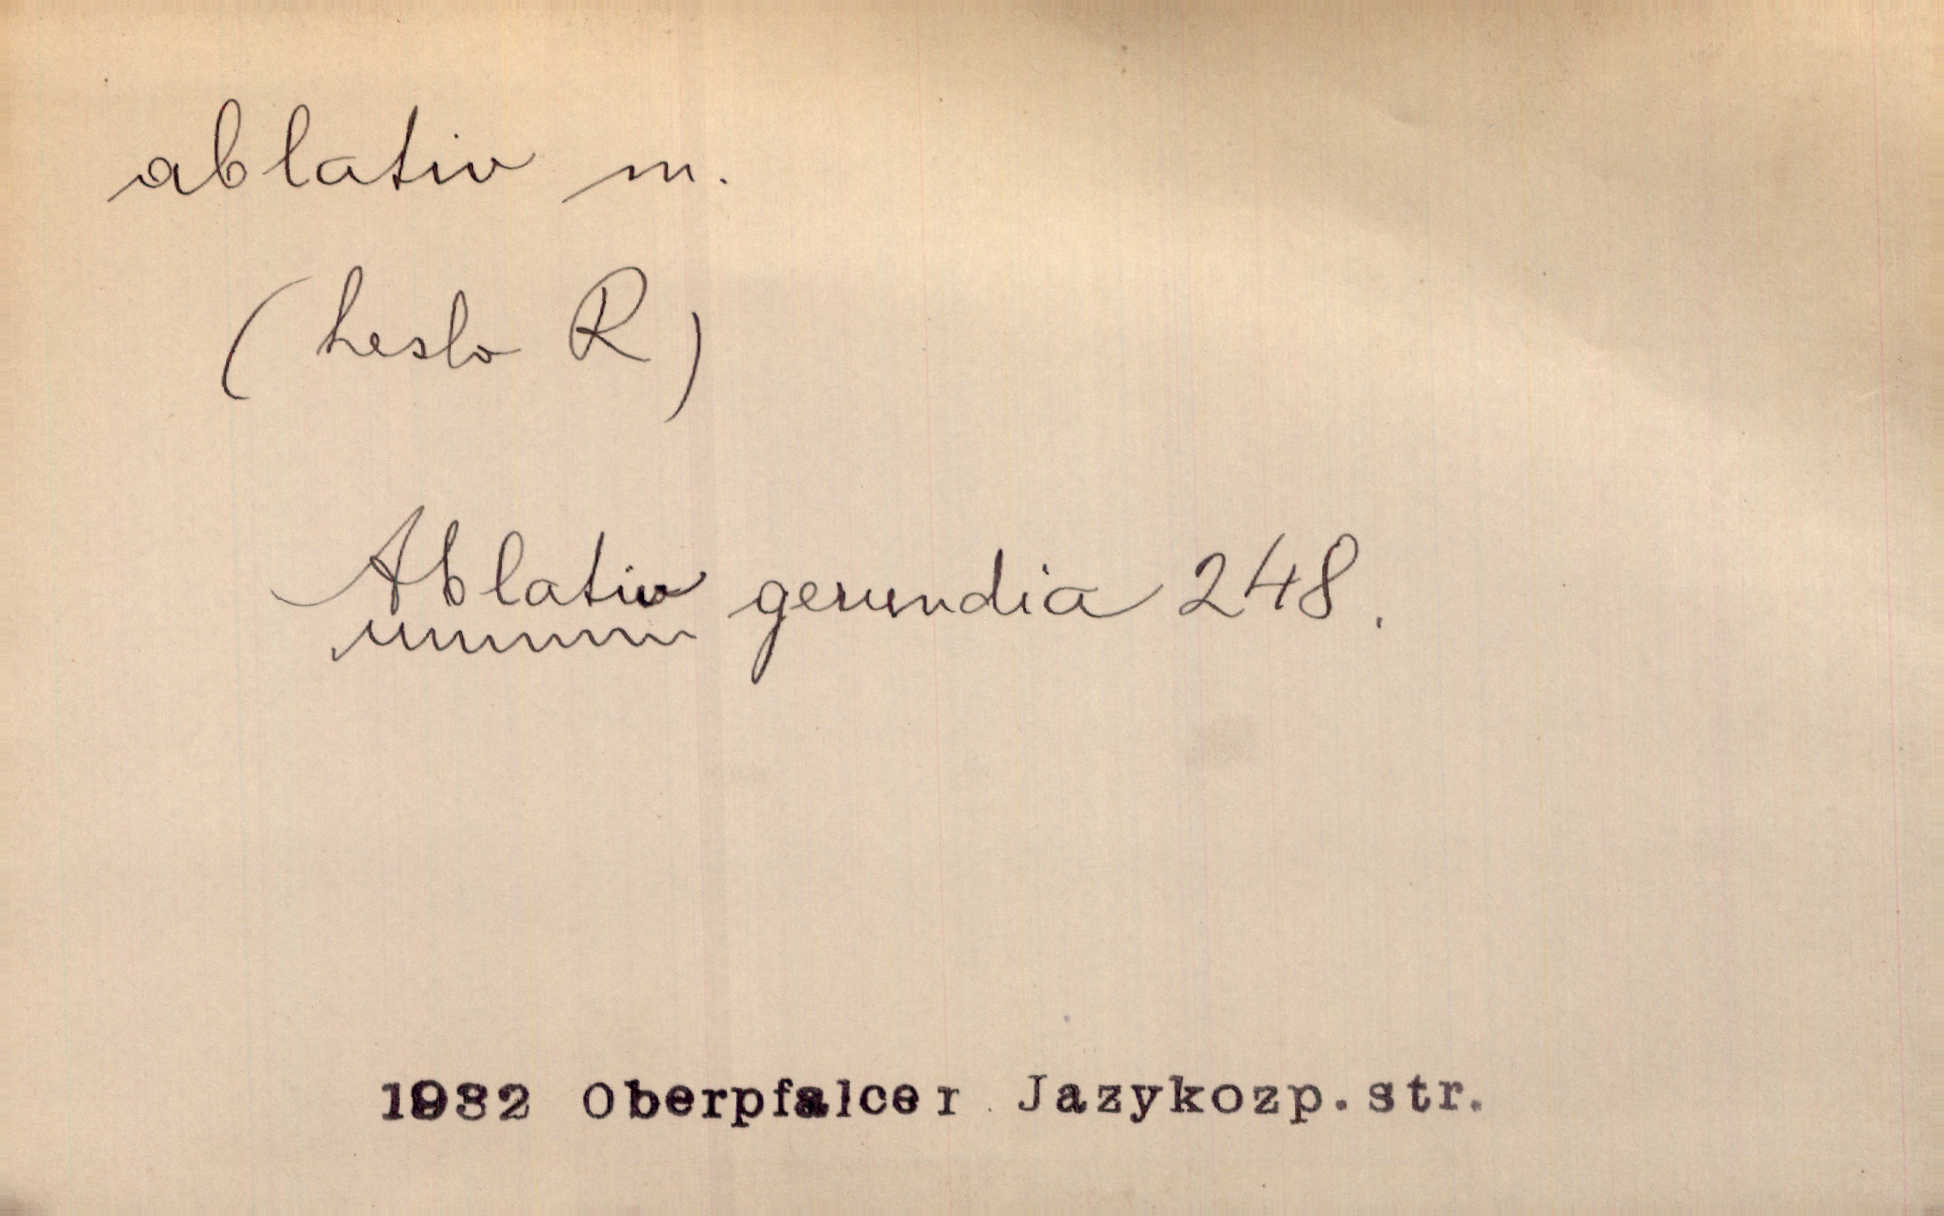 ablativ m.
(heslo R)
Ablativ gerundia 248.
1932 Oberpfalcer Jazykozp. str.